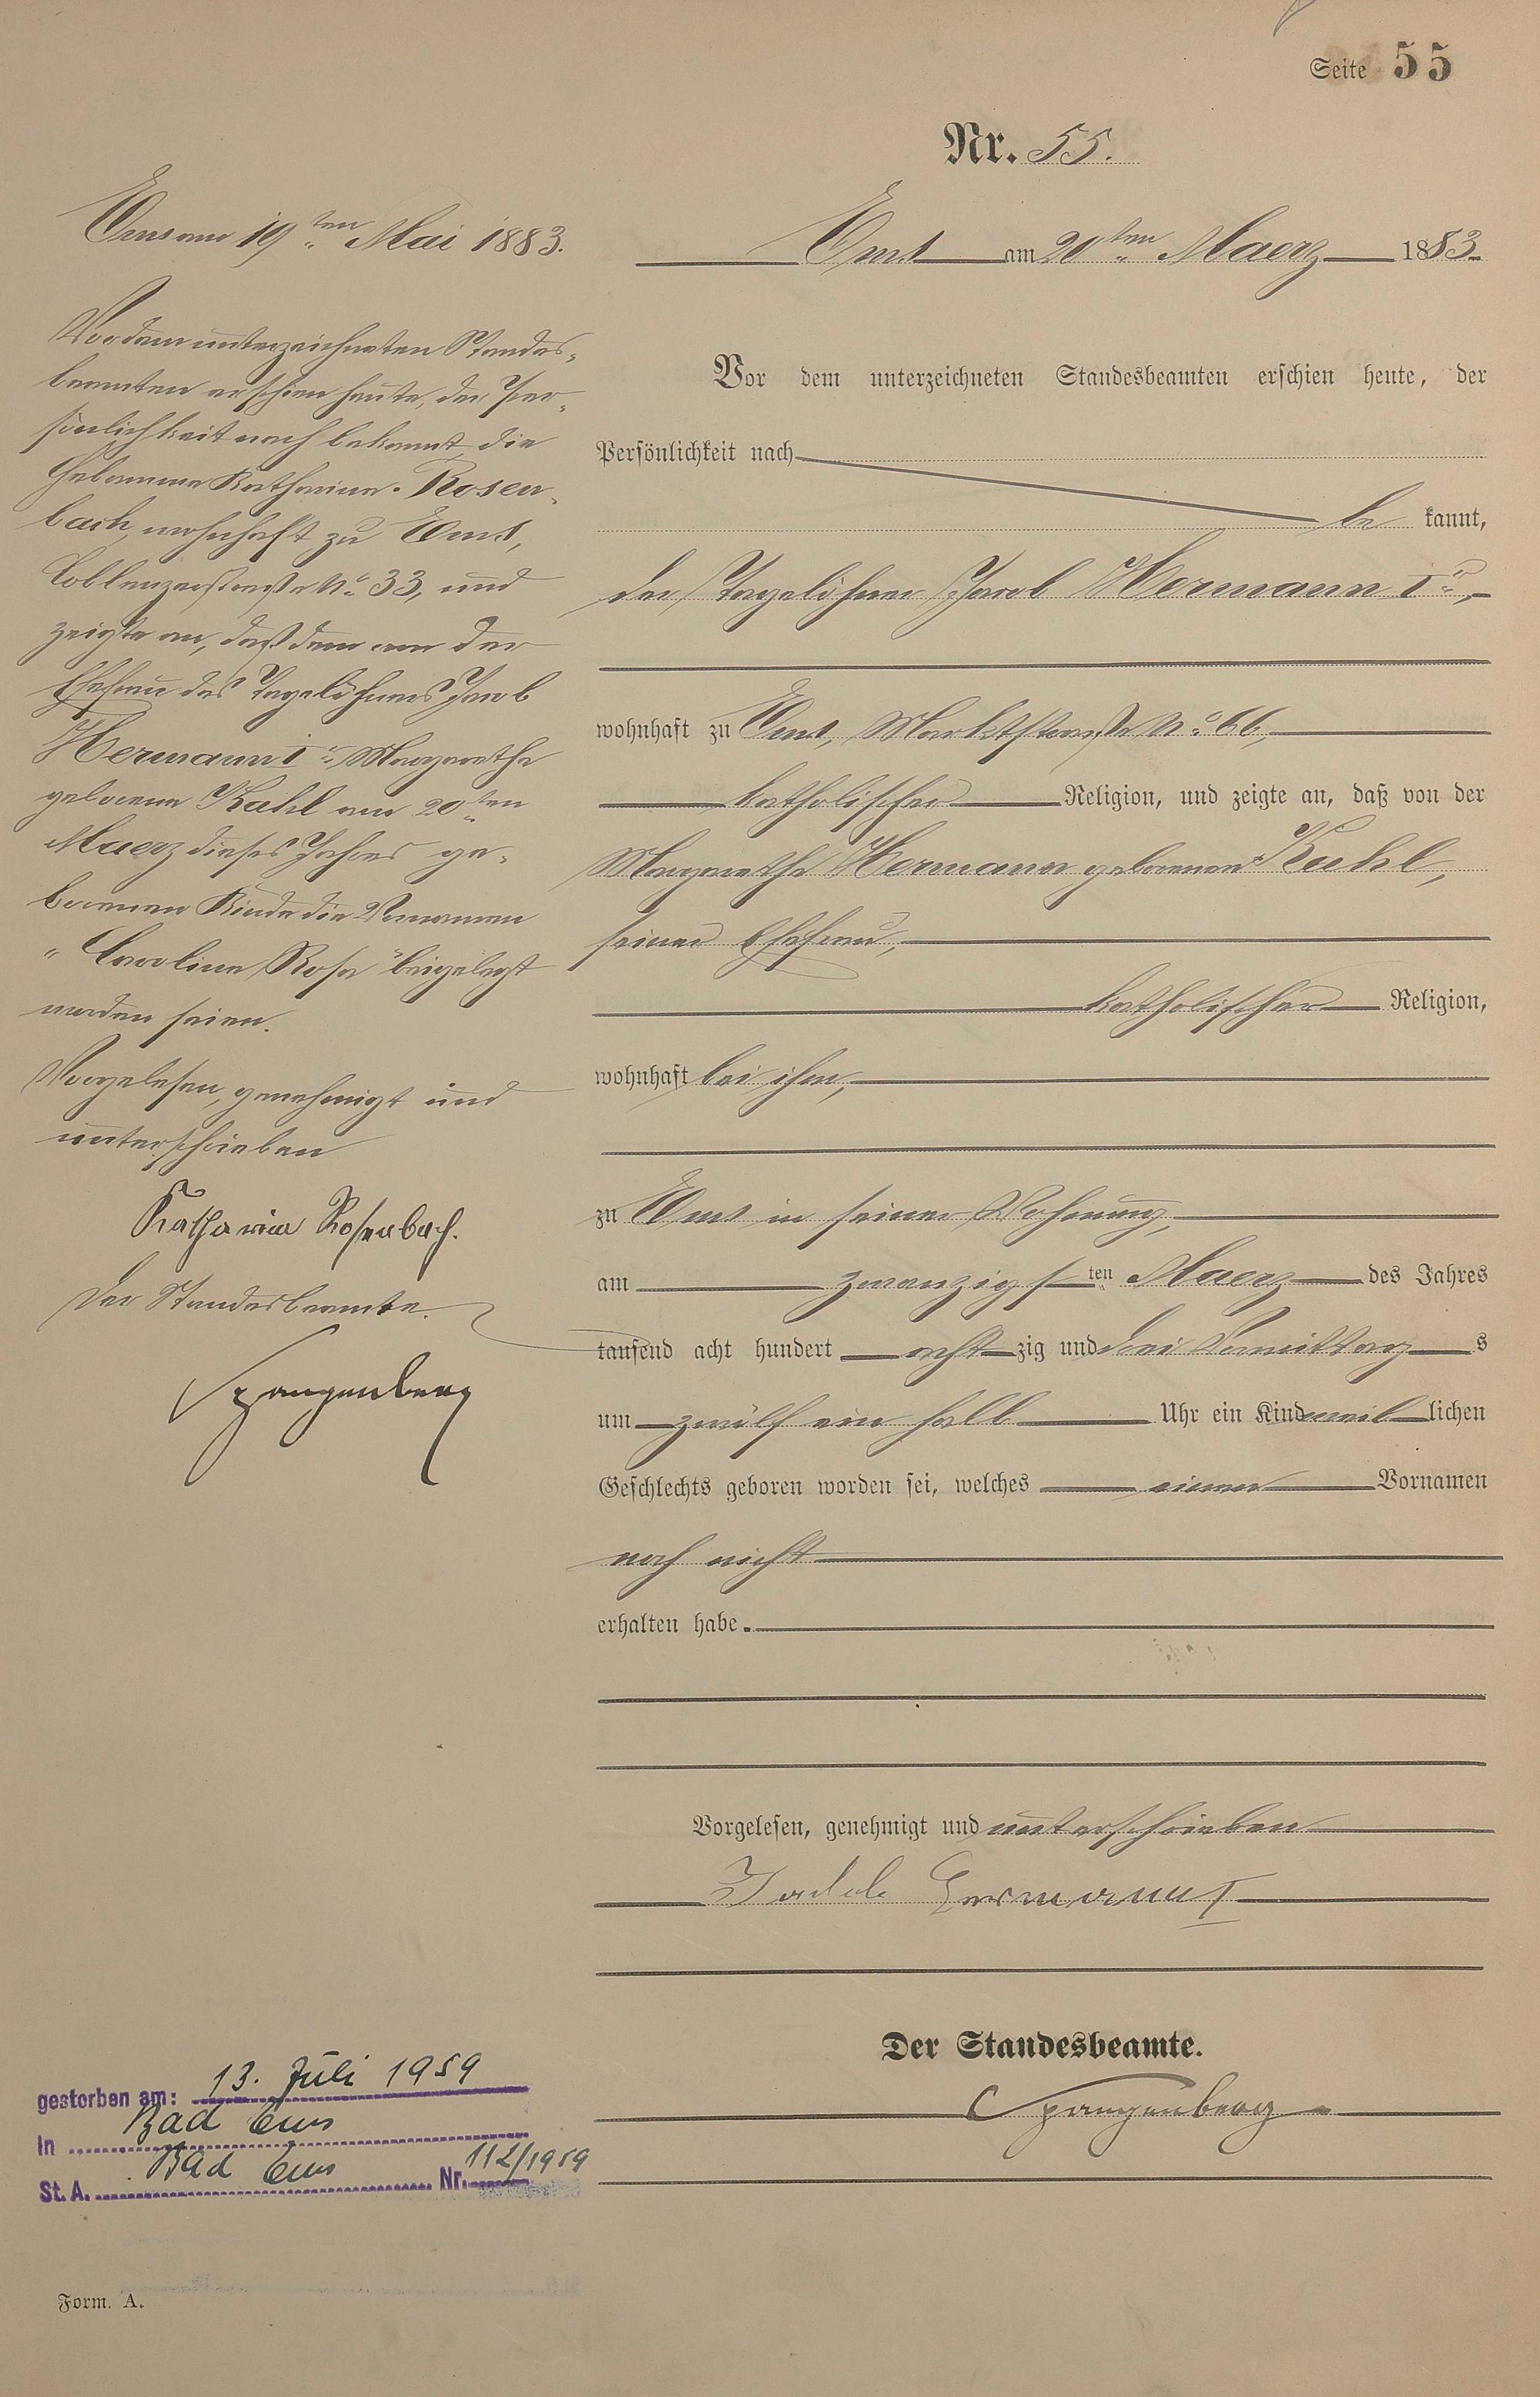 Seite 55
Nr. 55.
Ems am 20ten Maerz 1883.
Vor dem unterzeichneten Standesbeamten erschien heute, der
Persönlichkeit nach
be kannt,
der Tagelöhner Jacob Hermann Ir,
wohnhaft zu Ems, Marktstraße No. 66,
katholischer Religion, und zeigte an, daß von der
Margarethe Hermann geborenen Kuhl,
seiner Ehefrau,
katholischer Religion,
wohnhaft bei ihm,
zu Ems in seiner Wohnung,
am zwanzigs ten Maerz des Jahres
tausend acht hundert acht zig und drei Vormittag s
um zwölf ein halb Uhr ein Kind weib lichen
Geschlechts geboren worden sei, welches einen Vornamen
noch nicht
erhalten habe.
Vorgelesen, genehmigt und unterschrieben
Jackob Hermann I
Der Standesbeamte.
Spangenberg
Ems am 19ten Mai 1883.
Vor dem unterzeichneten Standes-
beamten erschien heute, der Per-
sönlichkeit nach bekannt, die
Hebamme Katharina Rosen-
bach, wohnhaft zu Ems,
Coblenzerstraße No. 33, und
zeigte an, daß dem von der
Ehefrau des Tagelöhners Jacob
Hermann Ir Margarethe
geborene Kuhl am 20ten
Maerz dieses Jahres ge-
borenen Kinde die Vornamen
"Caroline Rosa" beigelegt
worden seien.
Vorgelesen, genehmigt und
unterschrieben
Katharina Rosenbach.
Der Standesbeamte.
Spangenberg
gestorben am: 13. Juli 1959
in Bad Ems
St. A. Bad Ems Nr. 112/1959
Form. A.